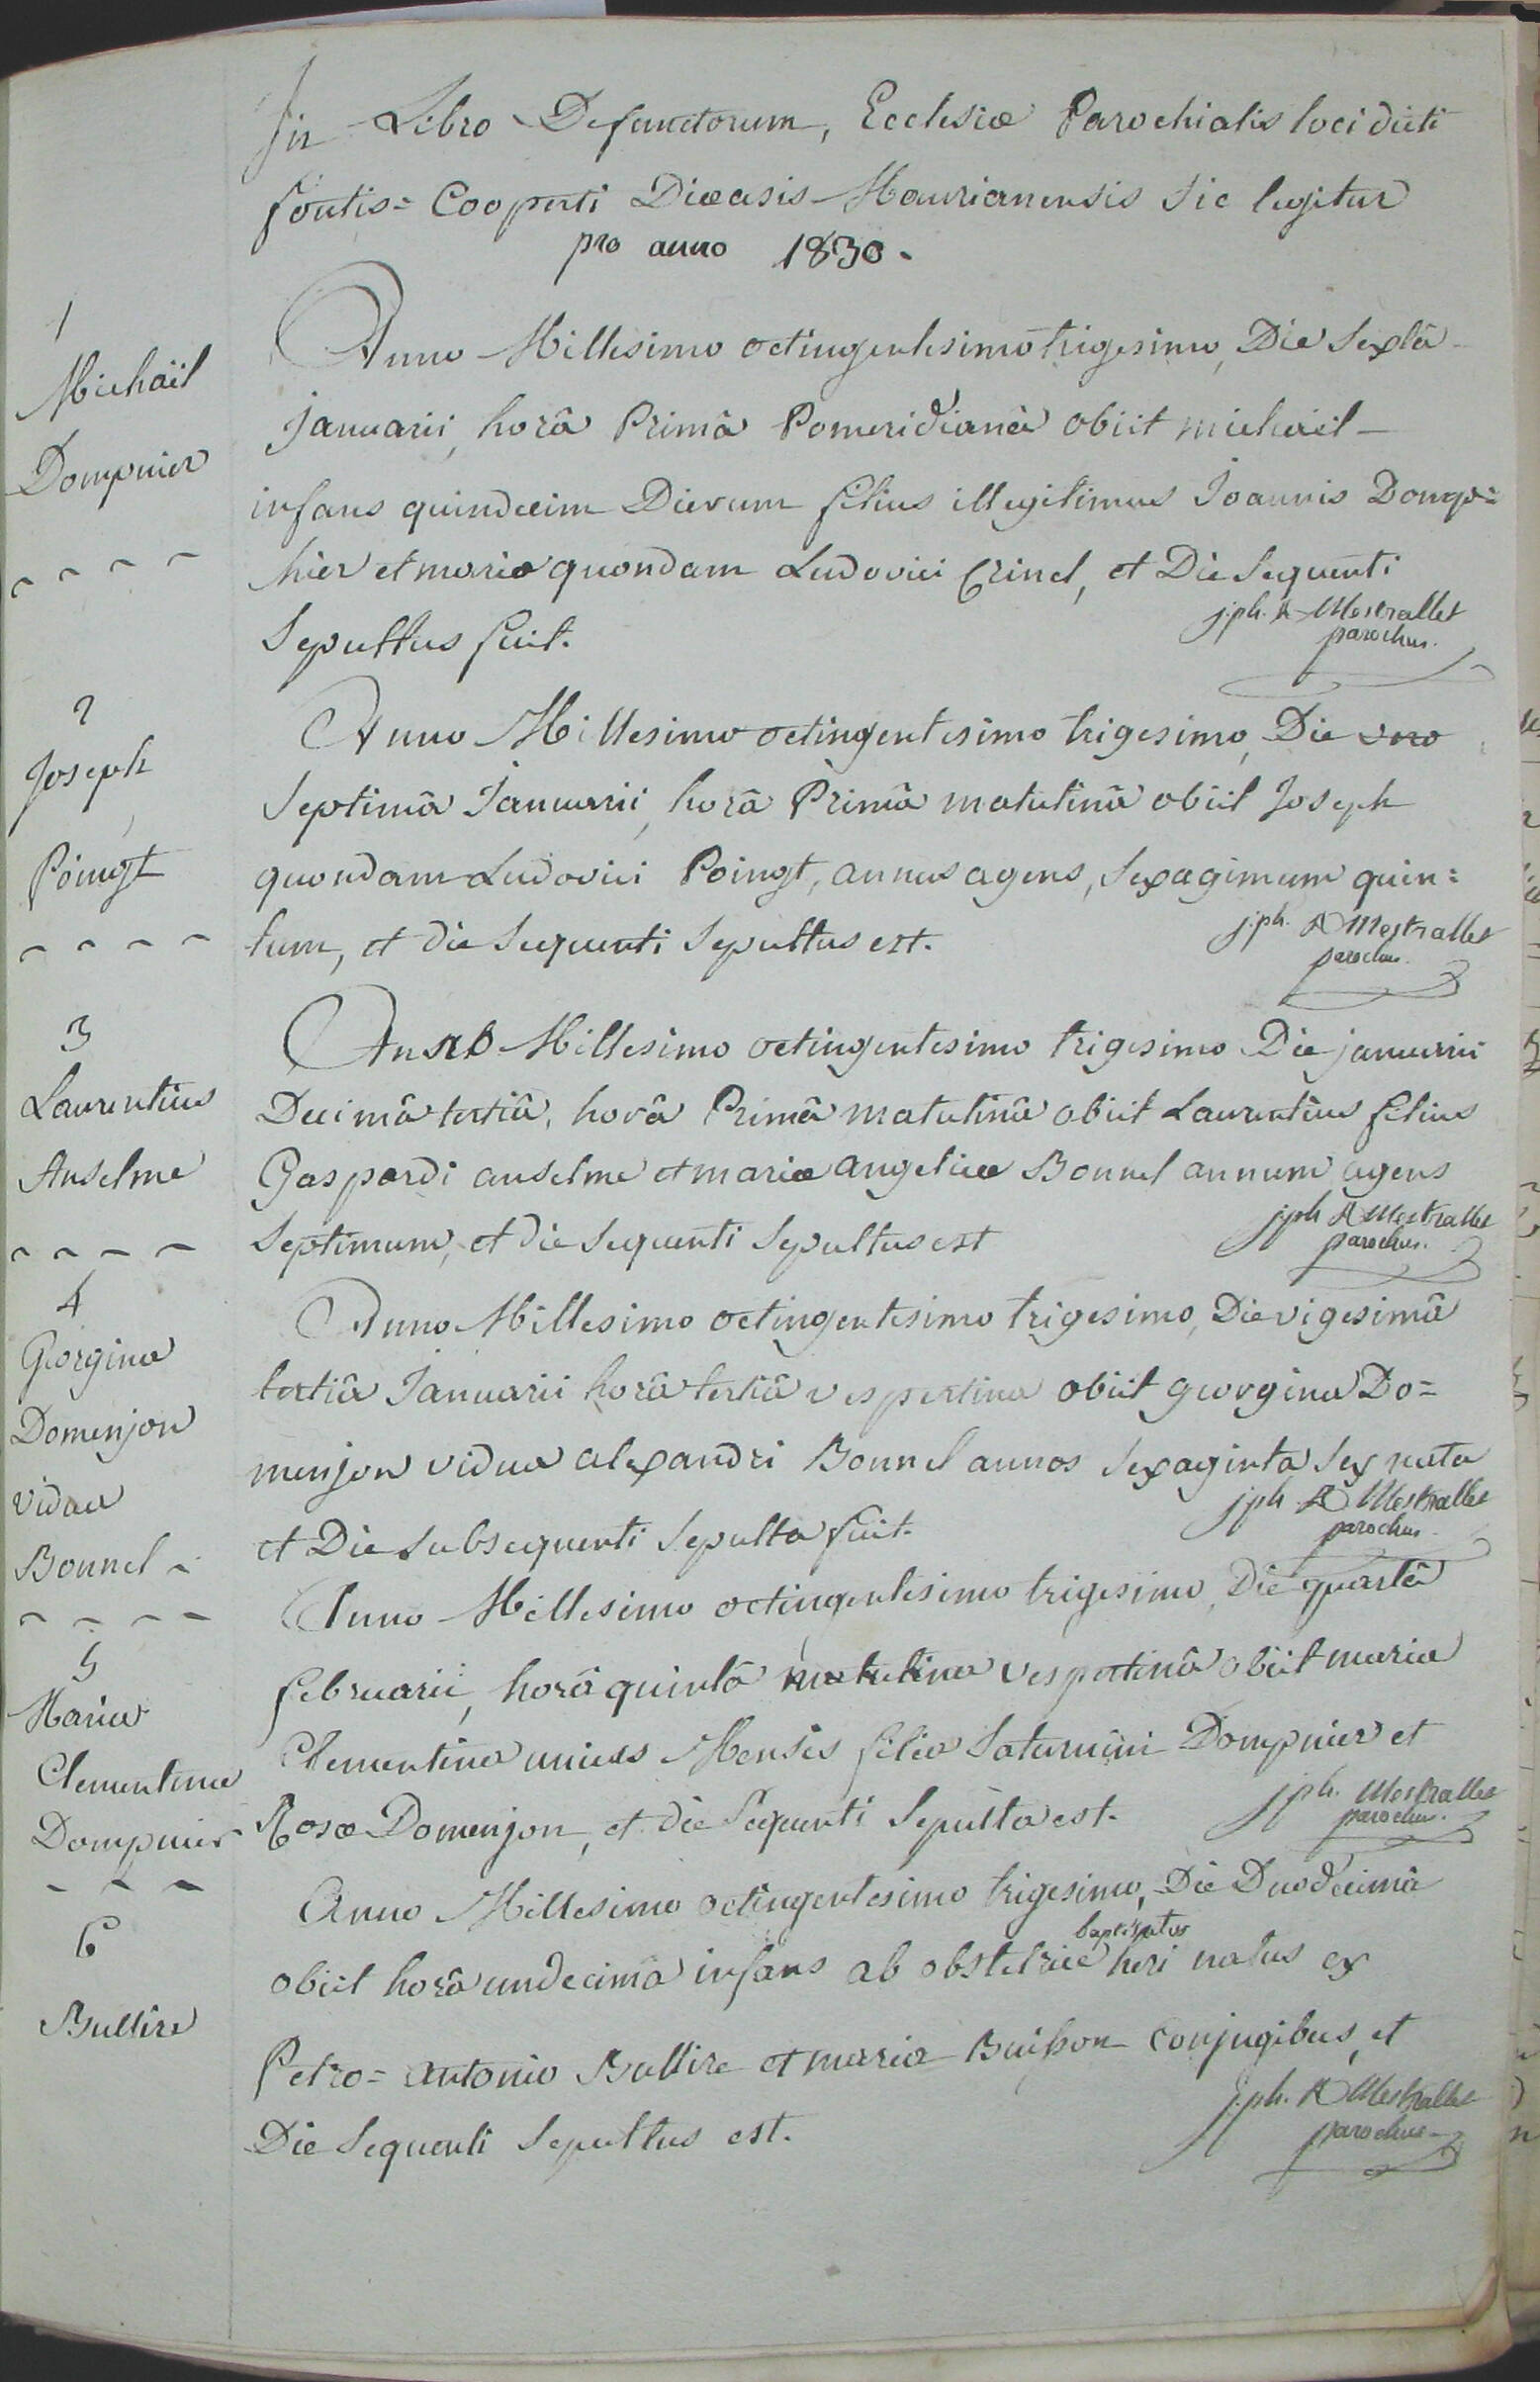 In Libro Defunctorum, Ecclesiæ Parochialis loci dicti
fontis= Cooperti Diœcesis Maurianensis sic legitur
pro anno 1830.
1
Michaël
Dompnier
Anno Millesimo octingentesimo trigesimo, Die Sextâ
Januarii, horâ Primâ Pomeridianâ obiit michaël
infans quindecim Dierum filius illegitimus Joannis Domp=
nier et mariæ quondam Ludovici Crinel, et Die Sequenti
Sepultus fuit.
j.ph. A Mestrallet
parochus.
2
Joseph
Poingt
Anno Millesimo octingentesimo trigesimo, Die
Septimâ Januarii, horâ Primâ matutinâ obiit Joseph
quondam Ludovici Poingt, annus agens, Sexagimum quin=
tum, et die Sequenti Sepultus est.
j.ph. A Mestrallet
parochus.
3
Laurentius
Anselme
Anno Millesimo octingentesimo trigesimo Die januarii
Decimâ tertiâ, horâ Primâ matutinâ obiit Laurentius filius
Gaspardi anselme et mariæ angelicæ Bonnel annum agens
Septimum, et die Sequenti Sepultus est
jph A Mestrallet
parochus.
4
Georgina
Domenjon
vidua
Bonnel
Anno Millesimo octingentesimo trigesimo, Die vigesimâ
tertiâ Januarii horâ tertiâ vespertina obiit georgina Do=
menjon vidua alexandri Bonnel annos Sexaginta Sex nata
et Die Subsequenti Sepulta fuit.
jph A Mestrallet
parochus
5
Maria
Clementina
Dompnier
Anno Millesimo octingentesimo trigesimo, Die quartâ
februarii, horâ quintâ matutina vespertinâ obiit maria
Clementina unius Mensis filia Saturnini Dompnier et
Rosæ Domenjon, et die Sequenti Sepulta est.
jph. Mestrallet
parochus.
6
Bullire
Anno Millesimo octingentesimo trigesimo, Die Duodecimâ
obiit horâ undecimâ infans ab obstetrice baptisatus heri natus ex
Petro= antonio Bullire et maria Buisson conjugibus, et
Die Sequenti Sepultus est.
j.ph. A Mestrallet
parochus